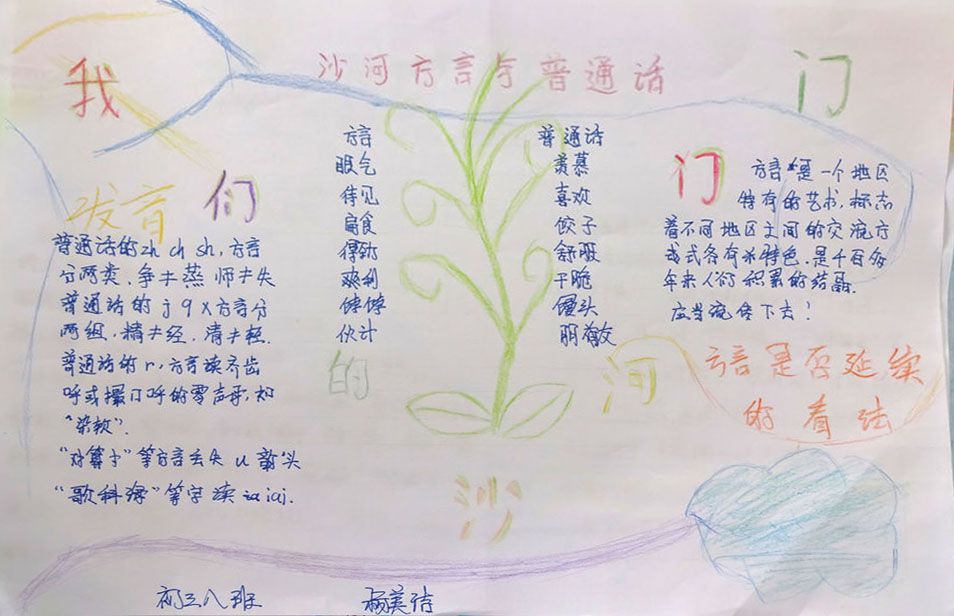 我
沙河方言与普通话
门
发音
们
普通话的zh ch sh,方言
分两类,争≠蒸 师≠失
普通话的 j q x 方言分
两组,精≠经,清≠轻.
普通话的r,方言读齐齿
呼或撮口呼的零声母,如
“染软”.
“对算寸”等方言丢失 u 韵头
“歌科河”等字读
方言
眼气
待见
扁食
得劲
欢利
饽饽
伙计
的
普通话
羡慕
喜欢
饺子
舒服
干脆
馒头
朋友
门
方言是一个地区
特有的艺术,标志
着不同地区之间的交流方
式各有特色,是千百
年来人们积累的结晶.
应当流传下去!
河
方言是否延续
的看法
沙
初三八班
杨美诗